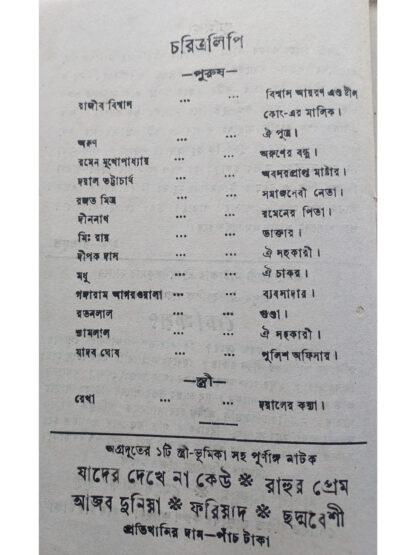 চরিত্রলিপি
—পুরুষ—
রাজীব বিশ্বাস ... ... বিশ্বাস আয়রণ এণ্ড ষ্টীল
কোং-এর মালিক।
অরুণ ... ... ঐ পুত্র।
রমেন মুখোপাধ্যায় ... ... অরুণের বন্ধু।
দয়াল ভট্টাচার্য ... ... অবসরপ্রাপ্ত মাষ্টার।
রজত মিত্র ... ... সমাজসেবী নেতা।
দীননাথ ... ... রমেনের পিতা।
মিঃ রায় ... ... ডাক্তার।
দীপক দাস ... ... ঐ সহকারী।
মধু ... ... ঐ চাকর।
গঙ্গারাম আগরওয়ালা ... ... ব্যবসাদার।
রতনলাল ... ... গুণ্ডা।
শ্যামলাল ... ... ঐ সহকারী।
যাদব ঘোষ ... ... পুলিশ অফিসার।
—স্ত্রী—
রেখা ... ... দয়ালের কন্যা।
অগ্রদূতের ১টি স্ত্রী-ভূমিকা সহ পূর্ণাঙ্গ নাটক
যাদের দেখে না কেউ ❋ রাহুর প্রেম
আজব দুনিয়া ❋ ফরিয়াদ ❋ ছদ্মবেশী
প্রতিখানির দাম—পাঁচ টাকা